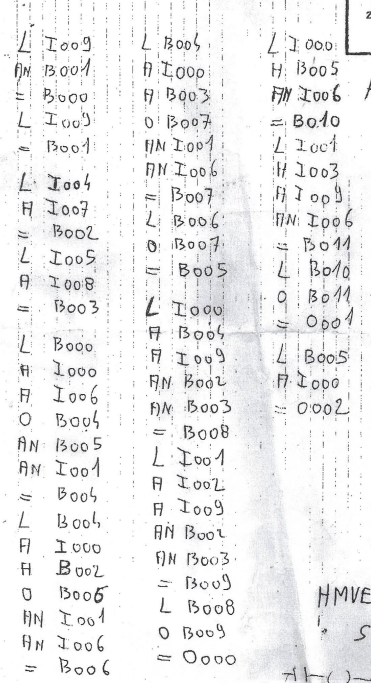 L I009
AN B001
= B000
L I009
= B001
L I004
A I007
= B002
L I005
A I008
= B003
L B000
A I000
A I006
O B004
AN B005
AN I001
= B004
L B004
A I000
A B002
O B006
AN I001
AN I006
= B006
L B004
A I000
A B003
O B007
AN I001
AN I006
= B007
L B006
O B007
= B005
L I000
A B004
A I009
AN B002
AN B003
= B008
L I001
A I002
A I009
AN B002
AN B003
= B009
L B008
O B009
= O000
L I000
A B005
AN I006
= B010
L I001
A I003
A I009
AN I006
= B011
L B010
O B011
= O001
L B005
A I000
= O002
2
HMVE
S